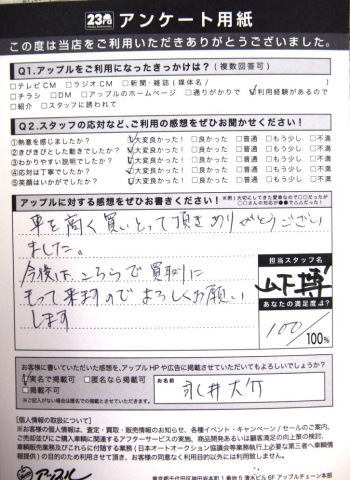 23周年 アンケート用紙
この度は当店をご利用いただきありがとうございました。
Q1.アップルをご利用になったきっかけは?(複数回答可)
□テレビCM □ラジオCM □新聞・雑誌(媒体名/ )
□チラシ □DM □アップルのホームページ □通りがかりで ☑利用経験があるので
□紹介 □スタッフに誘われて
Q2.スタッフの応対など、ご利用の感想をぜひお聞かせください!
①熱意を感じましたか? ☑大変良かった! □良かった □普通 □もう少し □不満
②きびきびとした動きでしたか? ☑大変良かった! □良かった □普通 □もう少し □不満
③わかりやすい説明でしたか? ☑大変良かった! □良かった □普通 □もう少し □不満
④応対は丁寧でしたか? ☑大変良かった! □良かった □普通 □もう少し □不満
⑤笑顔はいかがでしたか? ☑大変良かった! □良かった □普通 □もう少し □不満
アップルに対する感想をぜひお書きください!
車を高く買いとって頂きありがとうござい
ました。
今後は、こちらで買取に
もって来ますのでよろしくお願い
します
担当スタッフ名
山下 博
あなたの満足度は?
100/100%
お客様に書いていただいた感想を、アップルHPや広告に掲載させていただいてもよろしいでしょうか?
☑実名で掲載可 □匿名なら掲載可
□掲載不可
※ご記入がない場合は匿名での掲載とさせていただきます。
お名前
永井大介
【個人情報の取扱について】
※お客様の個人情報は、査定・買取・販売情報のお知らせ、各種イベント・キャンペーン/セールのご案内、
ご売却並びにご購入車輌に関連するアフターサービスの実施、商品開発あるいは顧客満足の向上策の検討、
アップル
東京都千代田区神田岩本町1番地5 清水ビル6F アップルチェーン本部